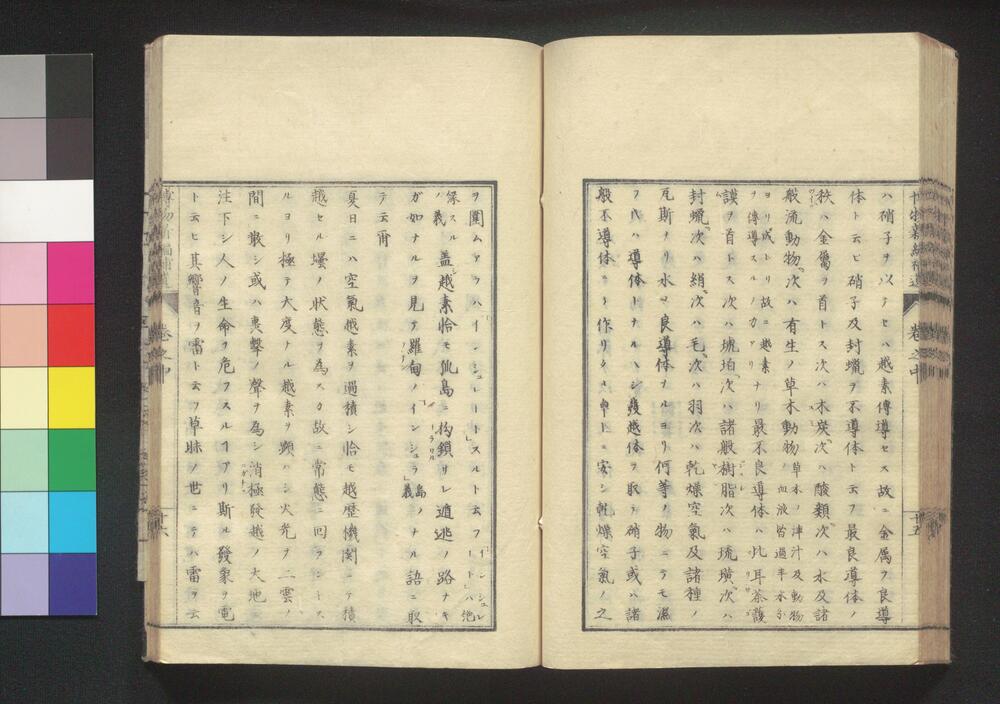 博物新編補遺 卷之中 廿五
ハ硝子ヲ以テセハ越素傳導セス故ニ金属ヲ良導
体ト云ヒ硝子及封蝋ヲ不導体ト云フ最良導体ノ
秩ハ金属ヲ首トス次ハ木炭次ハ酸類次ハ水及諸
般流動物次ハ有生ノ草木動物草木ノ津汁及動物
ノ血液皆過半水分
ヨリ成トリ故ニ越素
ヲ傳導スルノカアリナリ最不良導体ハ乩耳荅護
謨ヲ首トス次ハ琥珀次ハ諸般樹脂次ハ琉璜次ハ
封蝋次ハ絹次ハ毛次ハ羽次ハ乾燥空氣及諸種ノ
瓦斯ナリ水ハ良導体ヲルヨリ何等ノ物ニテモ濕
フ片ハ導体トナルハシ發越体ヲ取テ硝子或ハ諸
般不導体ニテ作リタル申トニ安シ乾燥空氣ノ之
ヲ圍ムアラハインシュレートストスルト云フインシュレ
ートハ弧
係スル
ノ義 盖越素恰モ孤島ニ拘鎖サレ遁逃ノ路ナキ
ガ如ナルヲ見テ羅甸ノインシュラ島ノ義ナル語ニ取
テ云爾
夏日ニハ空氣越素ヲ過積シ恰モ越歴機関ニテ積
越セル壜ノ状態ヲ為スカ故ニ常態ニ回ラントス
ルヨリ極テ大度ナル越素ヲ顕ハシ火光ヲ二雲ノ
間ニ散シ或ハ裏撃ノ聲ヲ為シ消極發越ノ大地ニ
注下シ人ノ生命ヲ危フスルヿアリ斯ル發象ヲ電
ト云ヒ其響音ヲ雷ト云フ草昧ノ世ニテハ雷ヲ云
博物新編補遺 卷之中 廿六